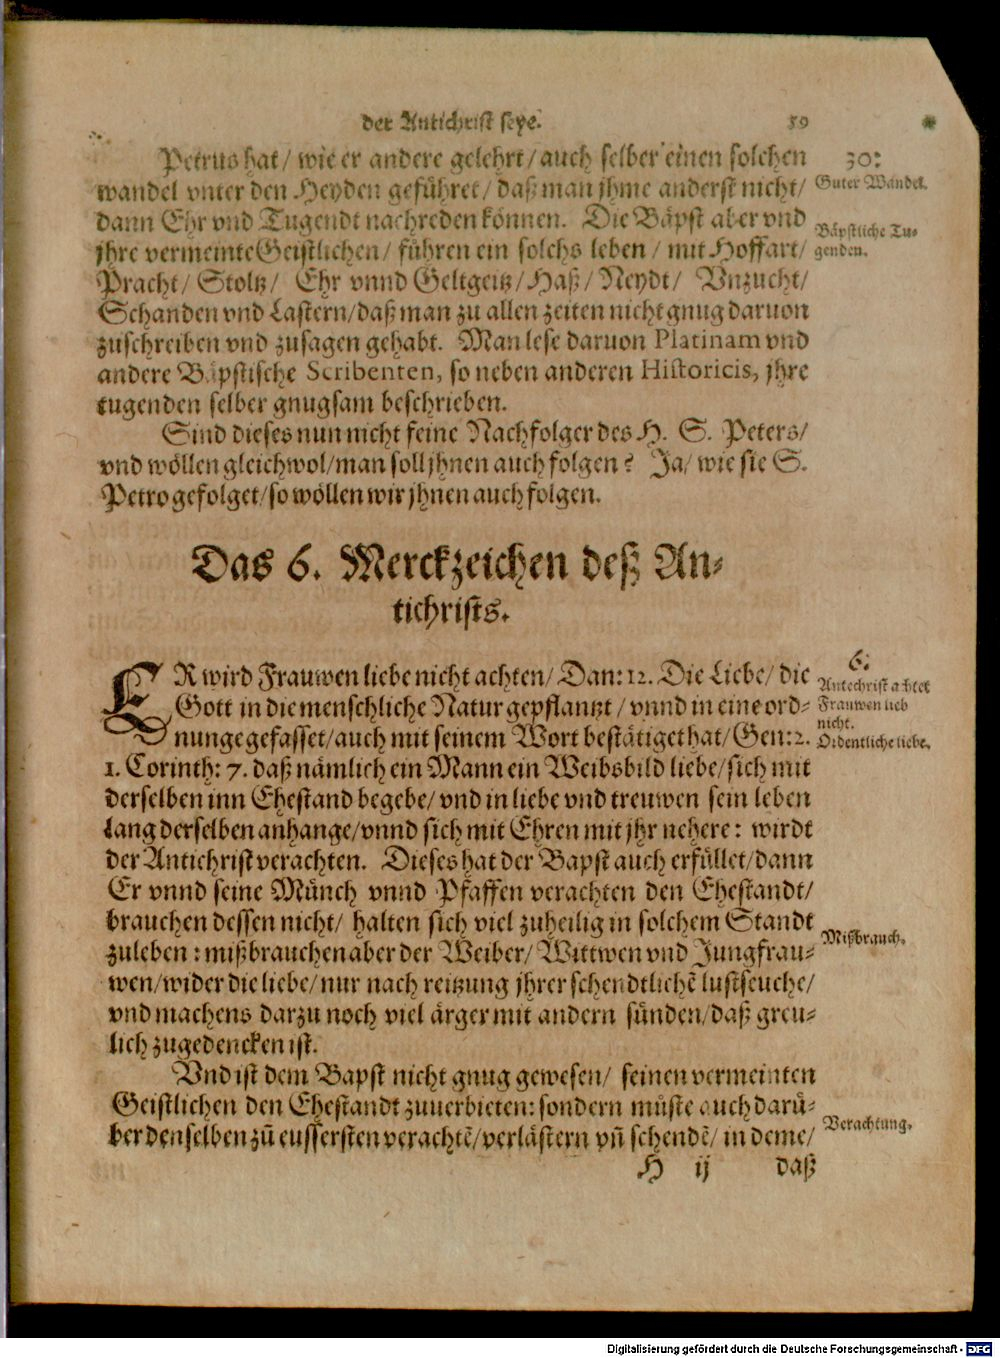 der Antichrist seye. 59
Petrus hat/ wie er andere gelehrt/ auch selber einen solchen
30:
wandel vnter den Heyden geführet/ daß man jhme anderst nicht/
Guter Wandel.
dann Ehr vnd Tugendt nachreden können. Die Bäpst aber vnd
Bäpstliche Tu-
jhre vermeinte Geistlichen/ führen ein solchs leben/ mit Hoffart/
genden.
Pracht/ Stoltz/ Ehr vnnd Geltgeitz/ Haß/ Neydt/ Vnzucht/
Schanden vnd Lastern/ daß man zu allen zeiten nicht gnug daruon
zuschreiben vnd zusagen gehabt. Man lese daruon Platinam vnd
andere Bäpstische Scribenten, so neben anderen Historicis, jhre
tugenden selber gnugsam beschrieben.
Sind dieses nun nicht feine Nachfolger des H. S. Peters/
vnd wöllen gleichwol/ man soll jhnen auch folgen? Ja/ wie sie S.
Petro gefolget/ so wöllen wir jhnen auch folgen.
Das 6. Merckzeichen deß An-
tichrists.
ER wird Frauwen liebe nicht achten/ Dan: 12. Die Liebe/ die
6:
Antechrist achtet
Gott in die menschliche Natur gepflantzt/ vnnd in eine ord-
Frauwen lieb
nicht.
nunge gefasset/ auch mit seinem Wort bestätiget hat/ Gen: 2.
Ordentliche liebe.
1. Corinth: 7. daß nämlich ein Mann ein Weibsbild liebe/ sich mit
derselben inn Ehestand begebe/ vnd in liebe vnd treuwen sein leben
lang derselben anhange/ vnnd sich mit Ehren mit jhr nehere: wirdt
der Antichrist verachten. Dieses hat der Bapst auch erfüllet/ dann
Er vnnd seine Münch vnnd Pfaffen verachten den Ehestandt/
brauchen dessen nicht/ halten sich viel zuheilig in solchem Standt
Mißbrauch.
zuleben: mißbrauchen aber der Weiber/ Wittwen vnd Jungfrau-
wen/ wider die liebe/ nur nach reitzung jhrer schendtlichē lustseuche/
vnd machens darzu noch viel ärger mit andern sünden/ daß greu-
lich zugedencken ist.
Vnd ist dem Bapst nicht gnug gewesen/ seinen vermeinten
Geistlichen den Ehestandt zuuerbieten: sondern müste auch darü-
Verachtung.
ber denselben zū eussersten verachtē/ verlästern vn̄ schendē/ in deme/
H ij daß
Digitalisierung gefördert durch die Deutsche Forschungsgemeinschaft - DFG